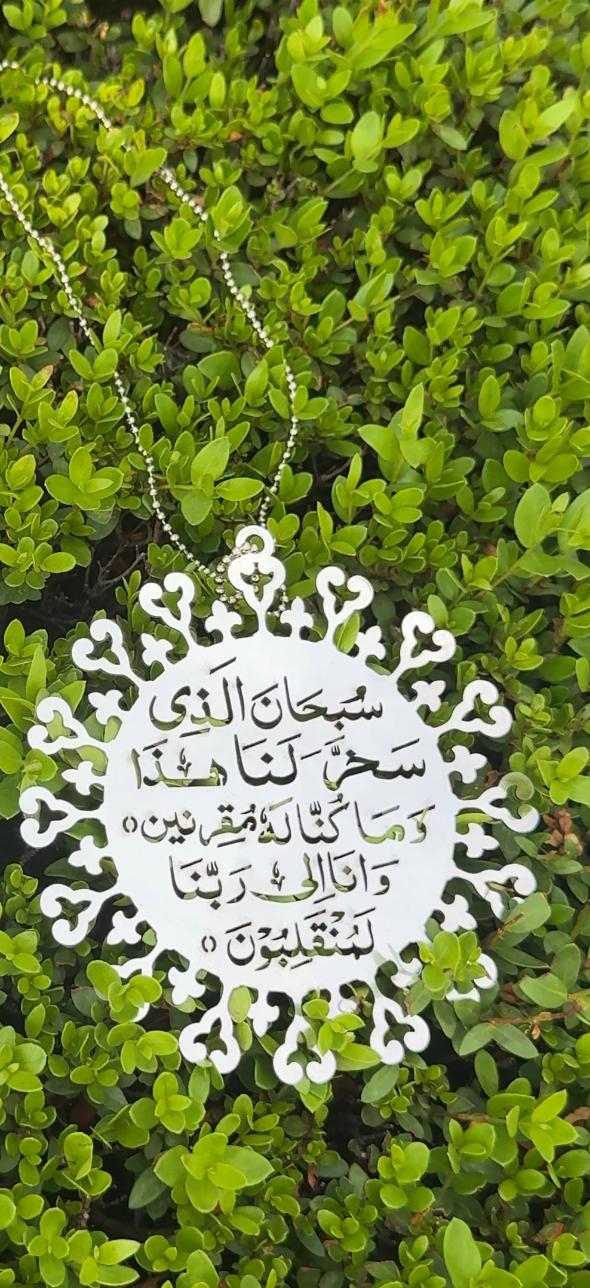 سُبحَانَ الَذِی
سَخَّرَ لَنَا هٰذَا
وَمَا كُنَّا لَهٗ مُقرِنِين ۝
وَاِنَّا اِلٰى رَبِّنَا
لَمُنْقَلِبُوْنَ ۝